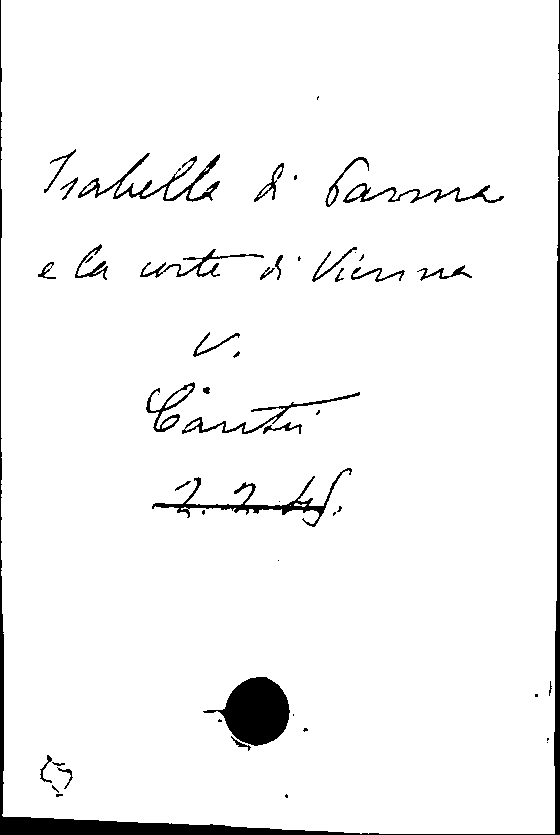 Isabella di Parma
e la corte di Vienna
v.
Cantù
2. 2. 45.